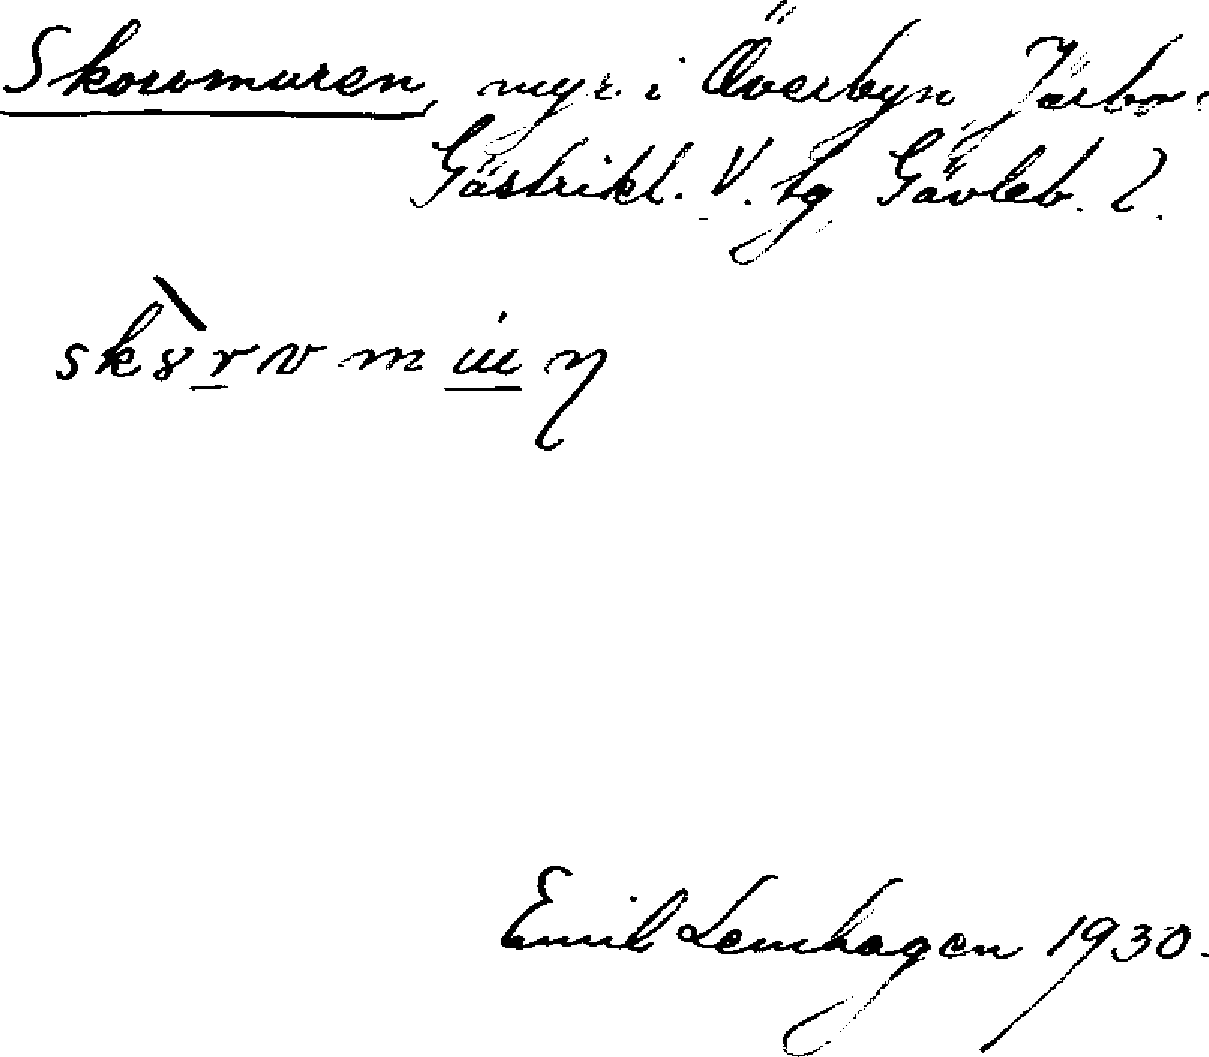 Skorvmuren, myr i Överbyn Järbo.
Gästrikl. V. tg Gävleb. l.
Emil Lemhagen 1930.